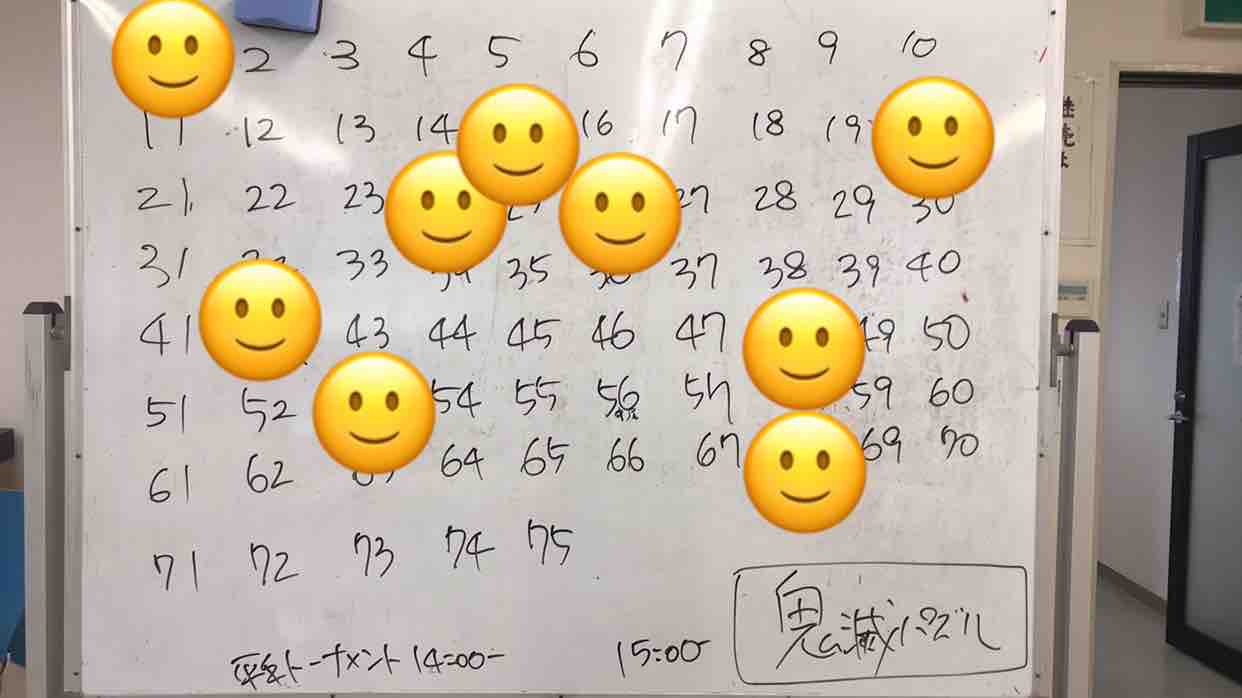 2 3 4 5 6 7 8 9 10
11 12 13 14 16 17 18 19
21 22 23 27 28 29 30
31 33 35 37 38 39 40
41 43 44 45 46 47 49 50
51 52 54 55 56 57 59 60
61 62 64 65 66 67 69 70
71 72 73 74 75
トーナメント 14:00ー 15:00ー
鬼滅パズル